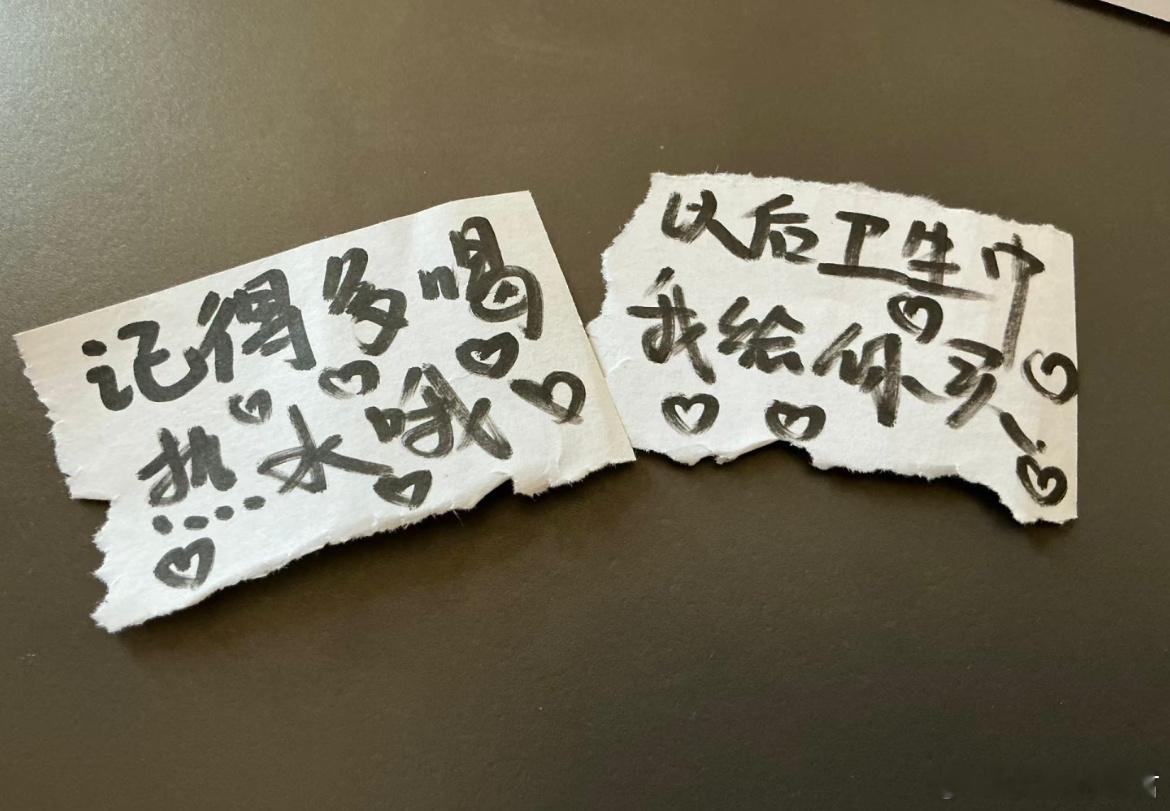 记得多喝
热水哦
以后卫生巾
我给你买!